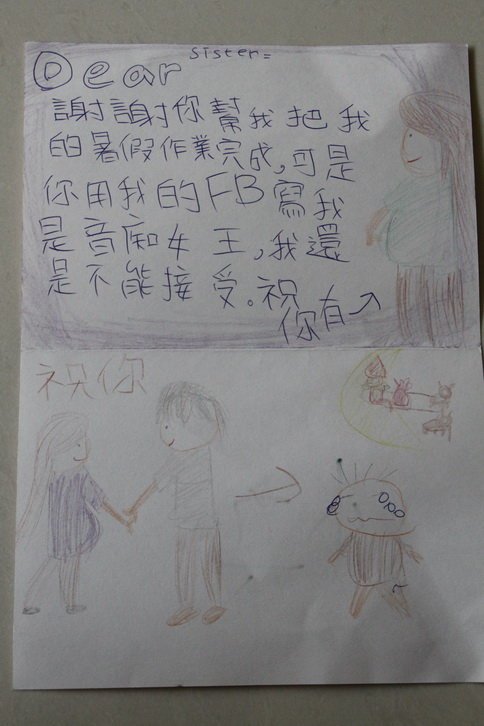 Dear sister=
謝謝你幫我把我
的暑假作業完成,可是
你用我的FB寫我
是音痴女王,我還
是不能接受。祝
你有↗
祝你